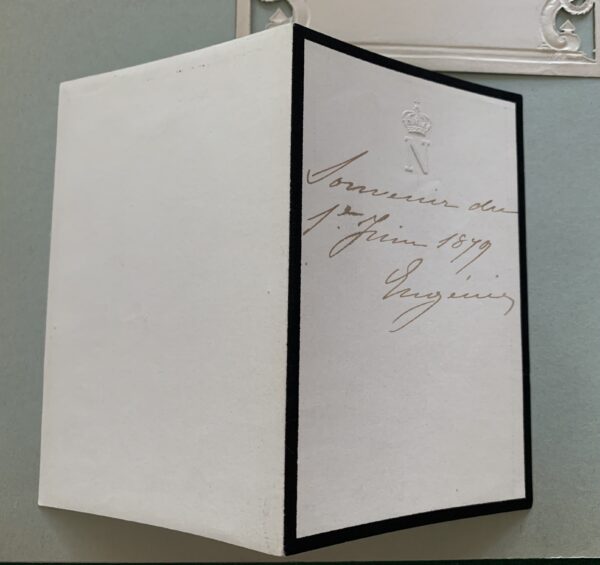 N
Souvenir du
1er Juin 1879
Eugénie